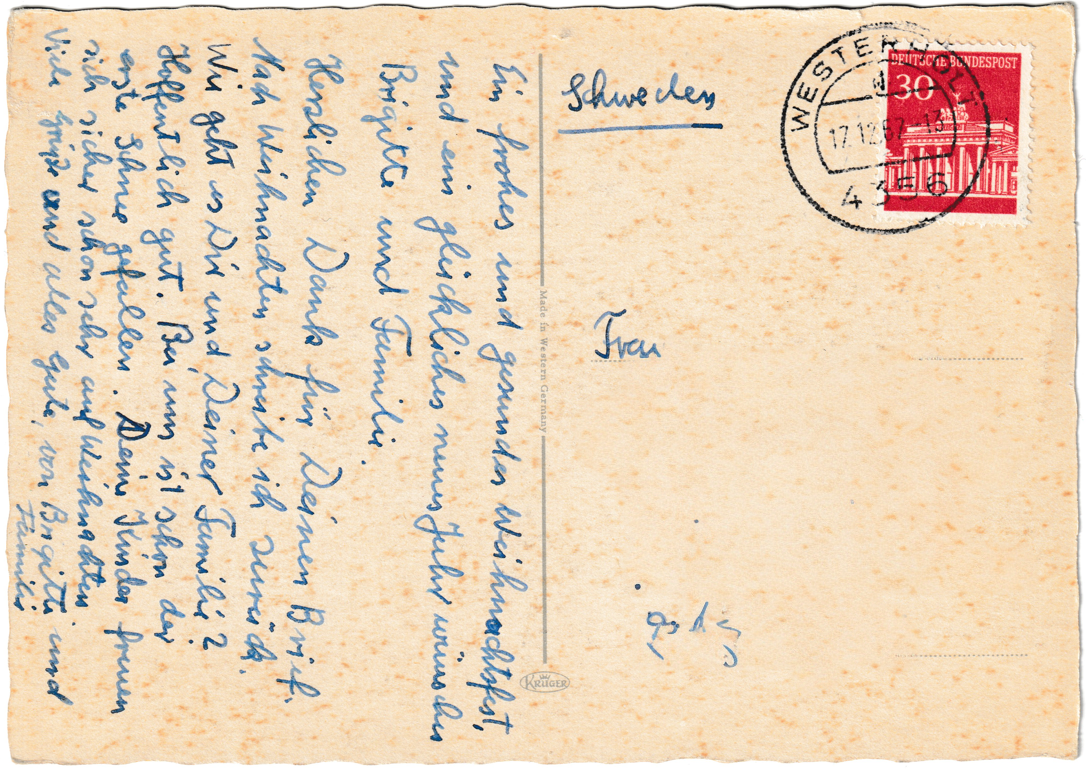 Ein frohes und gesundes Weihnachtsfest,
und ein glückliches neues Jahr wünschen
Brigitte und Familie.
Herzlichen Dank für Deinen Brief.
Nach Weihnachten schreibe ich zurück.
Wie geht es Dir und Deiner Familie?
Hoffentlich gut. Bei uns ist schon der
erste Schnee gefallen. Deine Kinder freuen
sich sicher schon sehr auf Weihnachten
Viele Grüße und alles Gute, von Brigitte und
Familie
Made in Western Germany
KRÜGER
Schweden
Frau
WESTERHOLT
17.12.67-13
4356
DEUTSCHE BUNDESPOST
30